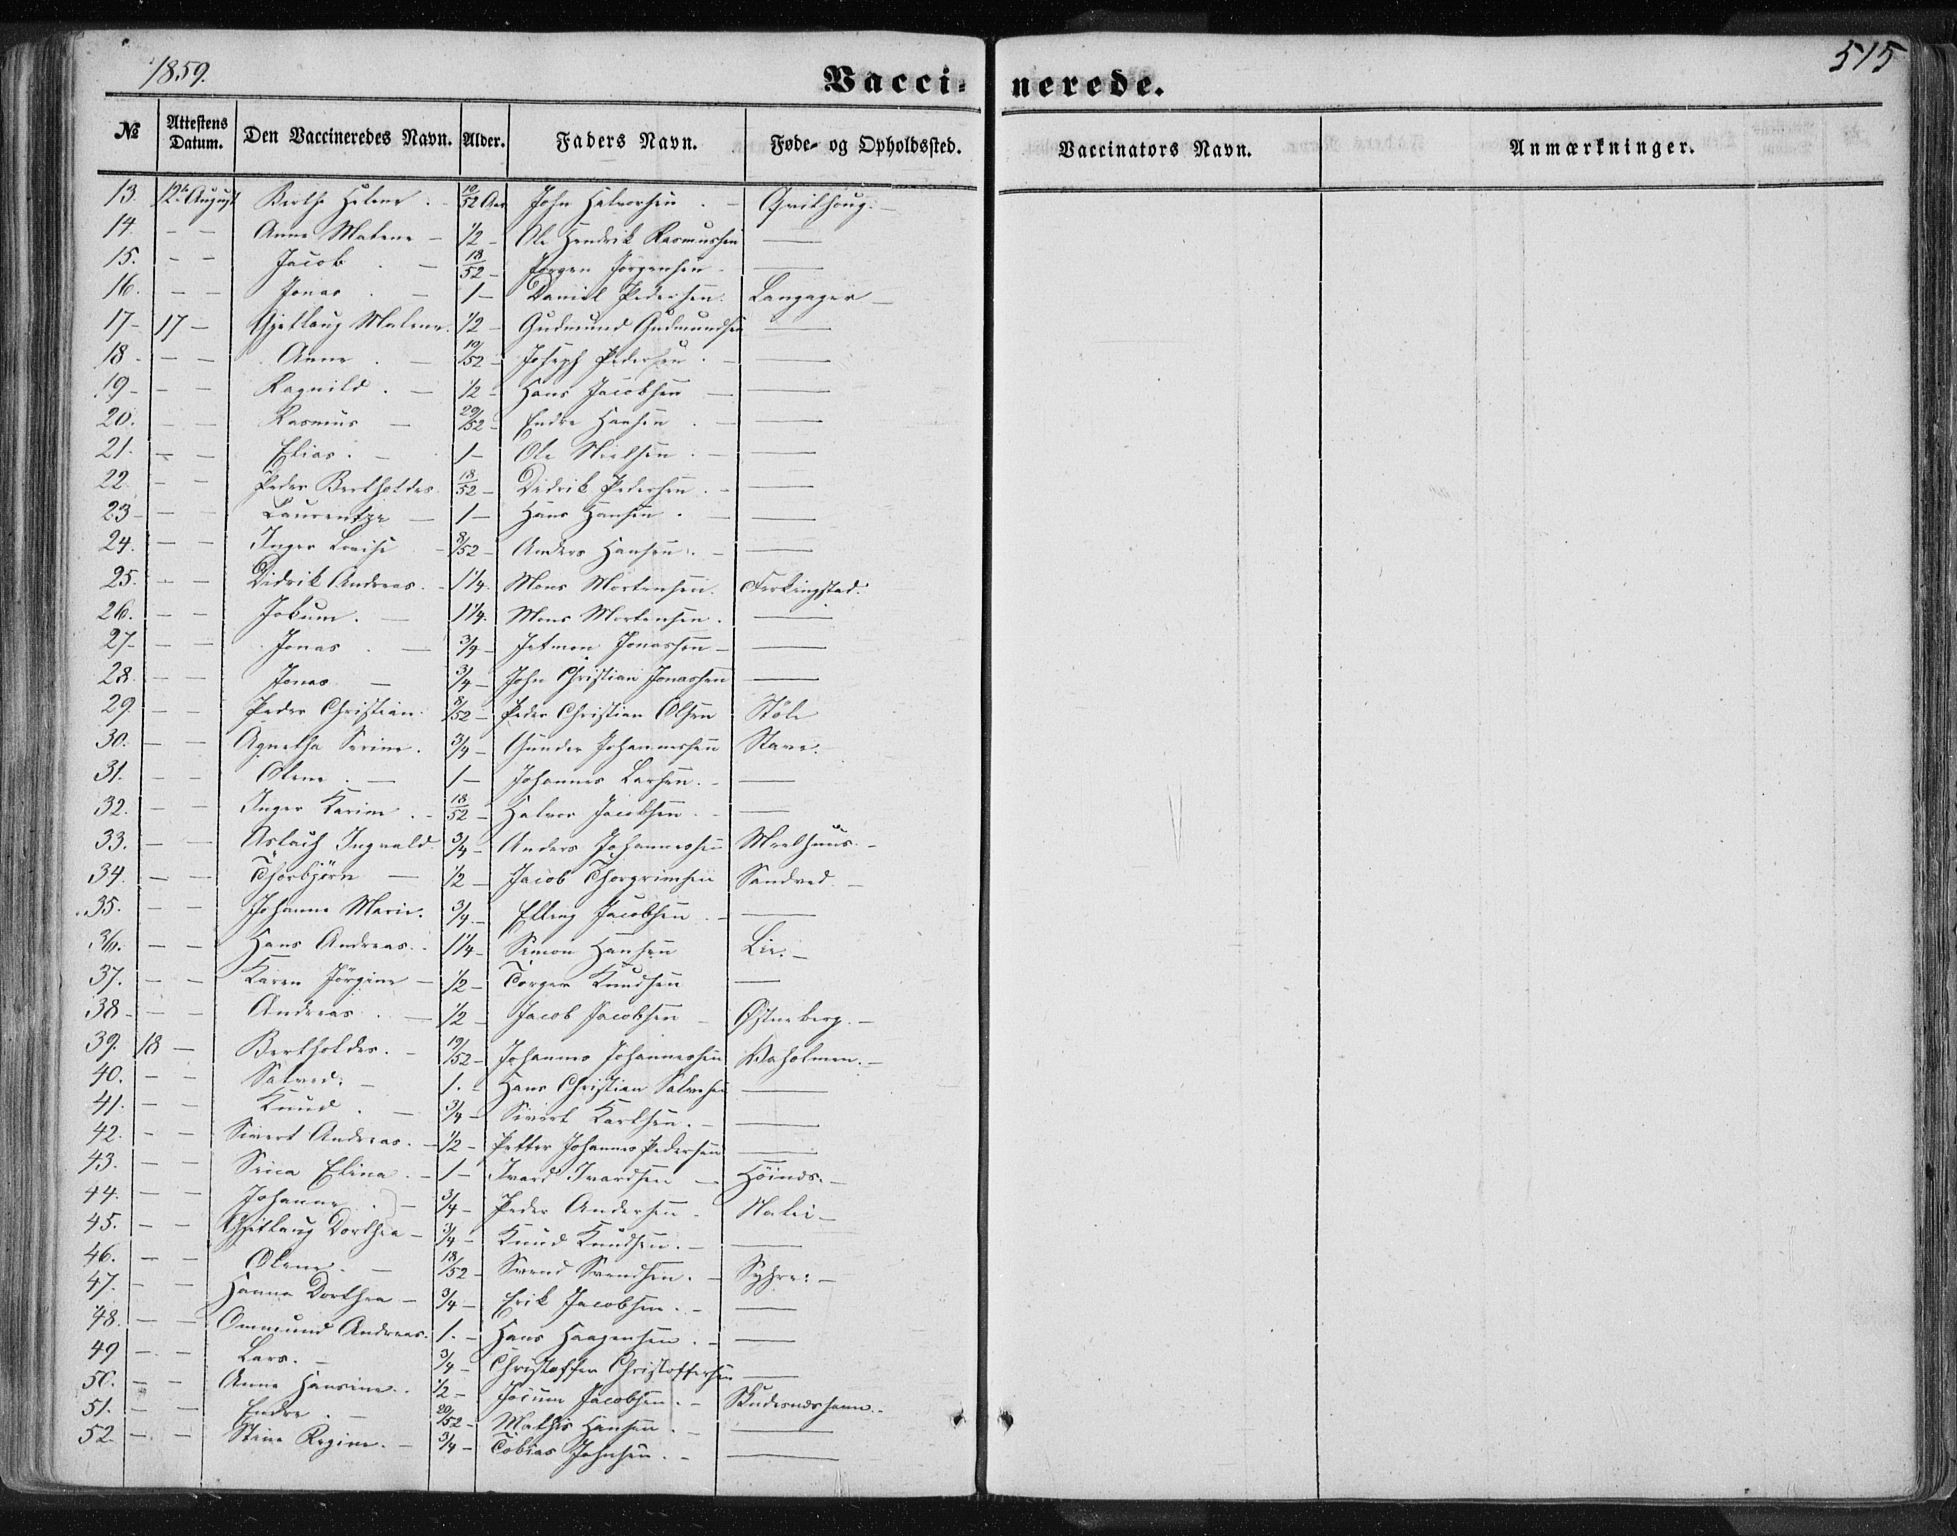 1859.
515
Vacci- nerede.
№ Attestens Datum. Den Vaccineredes Navn. Alder. Faders Navn. Føde- og Opholdssted. Vaccinators Navn. Anmærkninger.
13. 12te August Berthe Helene. - 10/52 Aar John Halvorsen. - Qvilhoug. -
14. - - Anne Malene - 1/2 - Ole Hendrik Rasmussen —
15. - - Jacob. - 18/52 - Jörgen Jörgensen - —
16. - - Jonas. - 1 - Daniel Pedersen. Langager -
17 - 17 - Gjetlaug Malene. 1/2 - Gudmund Gudmundsen —
18. - - Anne. - 19/52 - Joseph Pedersen. - —
19 - - - Ragnild. - 1/2 - Hans Jacobsen - —
20. - - Rasmus - 29/52 - Endre Hansen. - —
21. - - Elias. - 1 - Ole Nielsen. - —
22. - - Peder Bertholdes 18/52 - Didrik Pedersen. - —
23 - - - Laurentze - 1 - Hans Hansen. - —
24. - - Inger Lovise - 8/52 - Anders Hansen. - —
25. - - Didrik Andreas. - 1 1/4. Mons Mortensen. Ferkingstad.
26. - - Jokum. - 1 1/4. Mons Mortensen. —
27 - - - Jonas. - 3/4 - Jetmon Jonassen - —
28. - - Jonas - 3/4 - John Christian Jonassen —
29. - - Peder Christian. 8/52 - Peder Christian Olsen Stöle
30. - - Agnetha Serine. 3/4 - Gunder Johannessen Stave.
31. - - Olene. - 1 - Johannes Larsen. - —
32. - - Inger Karine. - 18/52 - Halvor Jacobsen. - —
33. - - Aslach Ingvald. 3/4 - Anders Johannessen Meelhuus. -
34. - - Thorbjörn - 1/2 - Jacob Thorgrimsen Sandved. -
35. - - Johanne Marie. 3/4. - Elling Jacobsen. - —
36. - - Hans Andreas. - 1 1/4 - Simon Hansen Lie. -
37. - - Karen Jörgine - 1/2 - Torger Knudsen —
38 - - - Andreas. - 1/2 - Jacob Jacobsen - Østneberg. -
39. 18 - Bertholdes. - 19/52 - Johannes Johannessen Vaholmen. -
40. - - Salved. - 1. - Hans Christian Salvesen —
41. - - Knud. - 3/4 - Sivert Karlsen. - —
42. - - Sivert Andreas. - 1/2 - Petter Johannes Pedersen —
43. - - Sirica Elina. - 1 - Ivard Ivardsen - Höinæs. -
44. - - Johanne. - 3/4 - Peder Andersen. Halei -
45. - - Gjetlaug Dorthea - 3/4 - Knud Knudsen. - —
46. - - Olene. - 18/52 - Svend Svendsen. - Syhre. -
47. - - Hanna Dorthea - 3/4 - Erik Jacobsen. - —
48. - - Ommund Andreas. 1. - Hans Haagensen. - —
49 - - - Lars. - 3/4 - Christoffer Christoffersen —
50. - - Anne Hansine. 1/2 - Jocum Jacobsen. - Skudesnæshavn. -
51. - - Endre. - 20/52 - Mathis Hansen. - —
52. - - Stine Regine. - 3/4 - Tobias Johnsen. - —